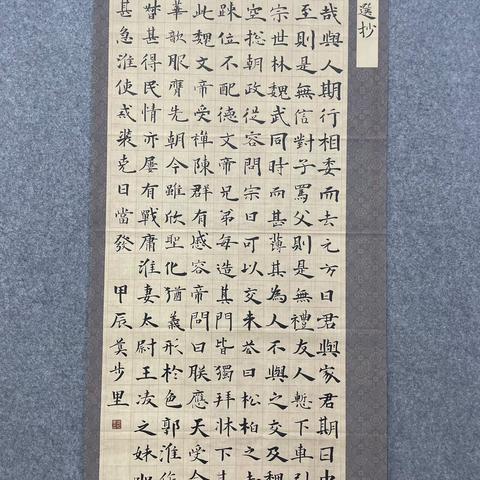 選抄
哉與人期行相委而去元方曰君與家君期日中
至則是無信對子罵父則是無禮友人慙下車引
宗世林魏武同時而甚薄其為人不與之交及魏
空總朝政從容問宗曰可以交未荅曰松柏之
踈位不配德文帝兄弟每造其門皆獨拜牀下其
此魏文帝受禪陳群有慼容帝問曰朕應天受命
華歆服膺先朝今雖欣聖化猶義形於色郭淮作
督甚得民情亦屢有戰庸淮妻太尉王凌之妹坐
甚急淮使戒裝克日當發 甲辰莫步里